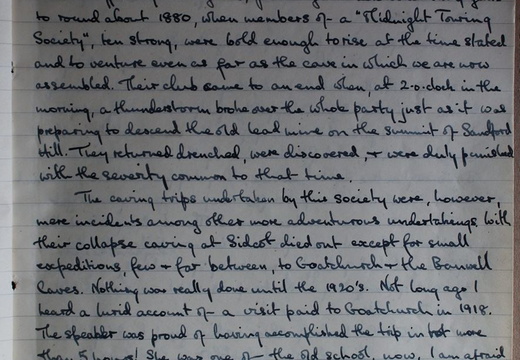 to round about 1880, when members of a "Midnight Touring
Society", ten strong, were bold enough to rise at the time stated
and to venture even as far as the cave in which we are now
assembled. Their club came to an end when, at 2.o.clock in the
morning, a thunderstorm broke over the whole party just as it was
preparing to descend the old lead mine on the summit of Sandford
Hill. They returned drenched, were discovered, + were duly punished
with the severity common to that time.
The caving trips undertaken by this society were, however,
mere incidents among other more adventurous undertakings. With
their collapse caving at Sidcot died out except for small
expeditions, few + far between, to Goatchurch + the Banwell
Caves. Nothing was really done until the 1920's. Not long ago I
heard a lurid account of a visit paid to Goatchurch in 1918.
The speaker was proud of having accomplished the trip in not more
than 5 hours! She was one of the old school, now, I am afraid